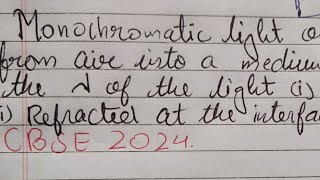 Monochromatic light o
from air into a medium
the λ of the light (i)
i) Refracted at the interfa
CBSE 2024.